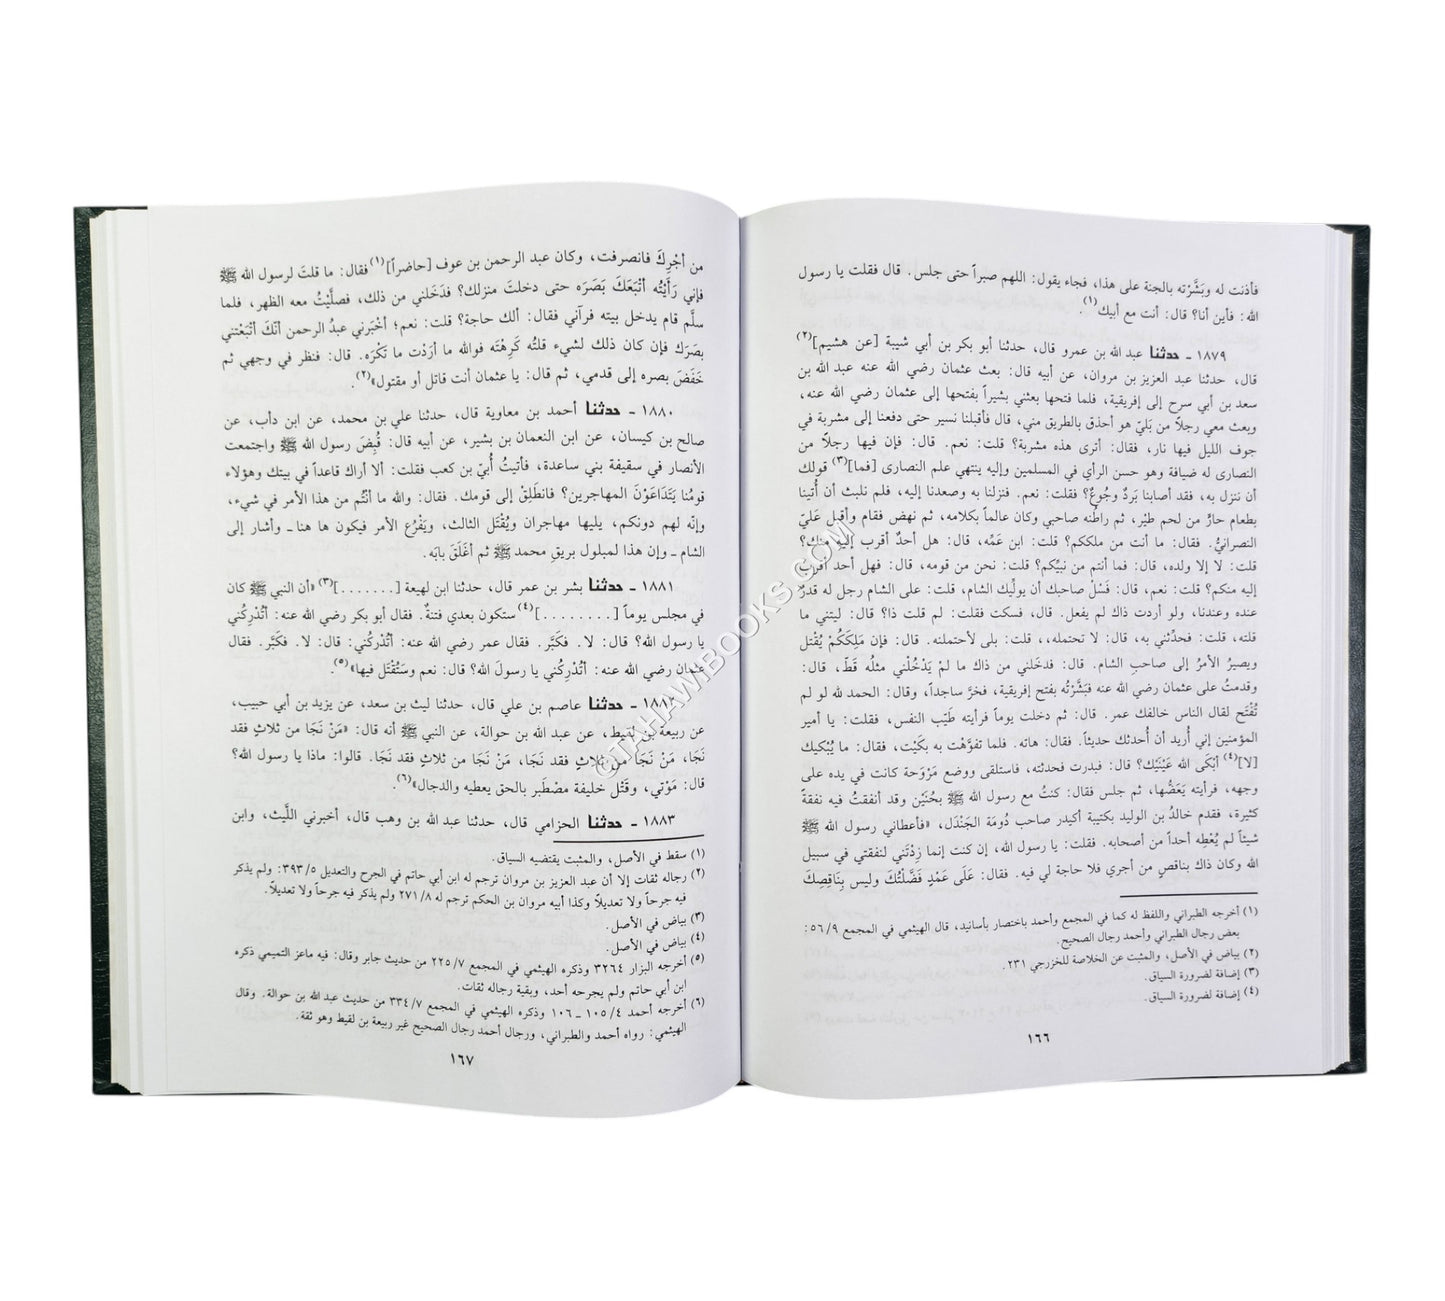 فأذنت له وبَشَّرْته بالجنة على هذا، فجاء يقول: اللهم صبراً حتى جلس. قال فقلت يا رسول
الله: فأين أنا؟ قال: أنت مع أبيك(١).
١٨٧٩ ـ حدثنا عبد الله بن عمرو قال، حدثنا أبو بكر بن أبي شيبة [عن هشيم](٢)
قال، حدثنا عبد العزيز بن مروان، عن أبيه قال: بعث عثمان رضي الله عنه عبد الله بن
سعد بن أبي سرح إلى إفريقية، فلما فتحها بعثني بشيراً بفتحها إلى عثمان رضي الله عنه،
وبعث معي رجلاً من بَليّ هو أحذق بالطريق مني، قال فأقبلنا نسير حتى دفعنا إلى مشربة في
جوف الليل فيها نار، فقال: أترى هذه مشربة؟ قلت: نعم. قال: فإن فيها رجلاً من
النصارى له ضيافة وهو حسن الرأي في المسلمين وإليه ينتهي علم النصارى [فما](٣) قولك
أن ننزل به، فقد أصابنا بَردٌ وجُوعٌ؟ فقلت: نعم. فنزلنا به وصعدنا إليه، فلم نلبث أن أُتينا
بطعام حارٍّ من لحم طيْر، ثم راطَنه صاحبي وكان عالماً بكلامه، ثم نهض فقام وأقبل عَليَ
النصرانيُّ. فقال: ما أنت من ملككم؟ قلت: ابن عَمِّه. قال: هل أحدٌ أقرب إليه منك؟
قلت: لا إلا ولده، قال: فما أنتم من نبيِّكم؟ قلت: نحن من قومه، قال: فهل أحد أقرب
إليه منكم؟ قلت: نعم، قال: فَسْل صاحبك أن يولِّيك الشام، قلت: على الشام رجل له قدرٌ
عنده وعندنا، ولو أردت ذاك لم يفعل. قال، فسكت فقلت: لم قلت ذا؟ قال: ليتني ما
قلته، قلت: فحدِّثني به، قال: لا تحتمله،، قلت: بلى لأحتملنه. قال: فإن مَلِكَكُمْ يُقْتل
ويصيرُ الأمرُ إلى صاحبِ الشام. قال: فدخَلني من ذاك ما لمْ يَدْخُلْني مثلُه قَطّ، قال:
وقدمتُ على عثمان رضي الله عنه فبَشَّرْتُه بفتح إفريقية، فخرَّ ساجداً، وقال: الحمد لله لو لم
تُفْتَح لقال الناس خالفك عمر. قال: ثم دخلت يوماً فرأيته طَيّب النفس، فقلت: يا أمير
المؤمنين إني أُريد أن أُحدثك حديثاً. فقال: هاته. فلما تفوَّهْت به بكَيْت، فقال: ما يُبْكيك
[لا](٤) أبْكَى الله عَيْنَيْك؟ قال: فبدرت فحدثته، فاستلقى ووضع مَرْوَحة كانت في يده على
وجهه، فرأيته يَعَضُّها، ثم جلس فقال: كنتُ مع رسول الله ﷺ بحُنَيْن وقد أنفقتُ فيه نفقةً
كثيرة، فقدم خالدُ بن الوليد بكتيبة أكيدر صاحب دُومَة الجَنْدَل، «فأعطاني رسول الله ﷺ
شيئاً لم يُعْطِه أحداً من أصحابه. فقلت: يا رسول الله، إن كنت إنما زِدْتَني لنفقتي في سبيل
الله وكان ذاك بناقصٍ من أجري فلا حاجة لي فيه. فقال: عَلَى عَمْدٍ فَضَّلْتُكَ وليس بِنَاقِصِكَ
(١) أخرجه الطبراني واللفظ له كما في المجمع وأحمد باختصار بأسانيد، قال الهيثمي في المجمع ٥٦/٩:
بعض رجال الطبراني وأحمد رجال الصحيح.
(٢) بياض في الأصل، والمثبت عن الخلاصة للخزرجي ٢٣١.
(٣) إضافة لضرورة السياق.
(٤) إضافة لضرورة السياق.
١٦٦
من أجْرِكَ فانصرفت، وكان عبد الرحمن بن عوف [حاضراً](١) فقال: ما قلتَ لرسول الله ﷺ
فإني رَأيْتُه أتْبَعَكَ بَصَرَه حتى دخلتَ منزلك؟ فدَخَلني من ذلك، فصلَّيْتُ معه الظهر، فلما
سلَّم قام يدخل بيته فرآني فقال: ألك حاجة؟ قلت: نعم؛ أخْبَرني عبدُ الرحمن أنّكَ أتْبَعْتني
بصَرَك فإن كان ذلك لشيء قلتُه كَرِهْتَه فوالله ما أرَدْت ما تكْرَه. قال: فنظر في وجهي ثم
خَفَضَ بصره إلى قدمي، ثم قال: يا عثمان أنت قاتل أو مقتول»(٢).
١٨٨٠ ـ حدثنا أحمد بن معاوية قال، حدثنا علي بن محمد، عن ابن دأب، عن
صالح بن كيسان، عن ابن النعمان بن بشير، عن أبيه قال: قُبِضَ رسول الله ﷺ واجتمعت
الأنصار في سقيفة بني ساعدة، فأتيتُ أُبيّ بن كعب فقلت: ألا أراك قاعداً في بيتك وهؤلاء
قومُنا يَتَدَاعَوْنَ المهاجرين؟ فانطَلِقْ إلى قومك. فقال: والله ما أنْتُم من هذا الأمر في شيء،
وإنّه لهم دونكم، يليها مهاجران ويُقْتَل الثالث، ويَفْرُغ الأمر فيكون ها هنا ـ وأشار إلى
الشام ـ وإن هذا لمبلول بريقِ محمد ﷺ ثم أغَلَقَ بابَه.
١٨٨١ ـ حدثنا بشر بن عمر قال، حدثنا ابن لهيعة [.......](٣) «أن النبي ﷺ كان
في مجلس يوماً [........](٤) ستكون بعدي فتنةٌ. فقال أبو بكر رضي الله عنه: أتُدْرِكُني
يا رسول الله؟ قال: لا. فكَبَّر. فقال عمر رضي الله عنه: أتُدْركُني: قال: لا. فكَبَّر. فقال
عثمان رضي الله عنه: أتُدْرِكُني يا رسولَ الله؟ قال: نعم وسَتُقْتَل فيها»(٥).
١٨٨٢ ـ حدثنا عاصم بن علي قال، حدثنا ليث بن سعد، عن يزيد بن أبي حبيب،
عن ربيعة بن لقيط، عن عبد الله بن حوالة، عن النبي ﷺ أنه قال: «مَنْ نَجَا من ثلاثٍ فقد
نَجَا، مَنْ نَجَا من ثلاثٍ فقد نَجَا، مَنْ نَجَا من ثلاثٍ فقد نَجَا. قالوا: ماذا يا رسول الله؟
قال: مَوْتي، وقَتْل خليفة مصْطَبر بالحق يعطيه والدجال»(٦).
١٨٨٣ ـ حدثنا الحزامي قال، حدثنا عبد الله بن وهب قال، أخبرني اللَّيث، وابن
(١) سقط في الأصل، والمثبت يقتضيه السياق.
(٢) رجاله ثقات إلا أن عبد العزيز بن مروان ترجم له ابن أبي حاتم في الجرح والتعديل ٣٩٣/٥: ولم يذكر
فيه جرحاً ولا تعديلاً وكذا أبيه مروان بن الحكم ترجم له ٢٧١/٨ ولم يذكر فيه جرحاً ولا تعديلاً.
(٣) بياض في الأصل.
(٤) بياض في الأصل.
(٥) أخرجه البزار ٣٢٦٤ وذكره الهيثمي في المجمع ٢٢٥/٧ من حديث جابر وقال: فيه ماعز التميمي ذكره
ابن أبي حاتم ولم يجرحه أحد، وبقية رجاله ثقات.
(٦) أخرجه أحمد ١٠٥/٤ ـ ١٠٦ وذكره الهيثمي في المجمع ٣٣٤/٧ من حديث عبد الله بن حوالة. وقال
الهيثمي: رواه أحمد والطبراني، ورجال أحمد رجال الصحيح غير ربيعة بن لقيط وهو ثقة.
١٦٧
©TAHAWIBOOKS.COM